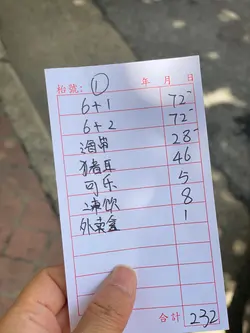 枱號：① 年 月 日
6+1 72-
6+2 72-
酒芽 28-
猪耳 46
可乐 5
冻饮 8
外卖盒 1
合計 232